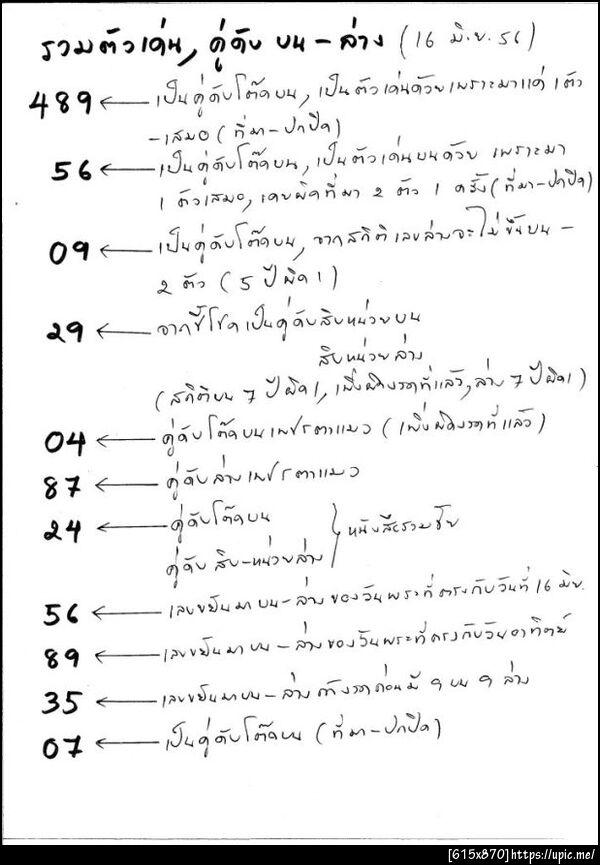 รวมตัวเด่น, คู่ดับ บน - ล่าง (16 มิ.ย. 56)
489 ← เป็นคู่ดับโต๊ดบน, เป็นตัวเด่นด้วยเพราะมาแค่ 1 ตัว
- เสมอ (ที่มา - ปกปิด)
56 ← เป็นคู่ดับโต๊ดบน, เป็นตัวเด่นบนด้วย เพราะมา
1 ตัวเสมอ, เคยผิดที่มา 2 ตัว 1 ครั้ง (ที่มา - ปกปิด)
09 ← เป็นคู่ดับโต๊ดบน, จากสถิติเลขล่างจะไม่ขึ้นบน -
2 ตัว (5 ปี ผิด 1)
29 ← จากชี้โชค เป็นคู่ดับสิบหน่วยบน
สิบหน่วยล่าง
(สถิติบน 7 ปี ผิด 1, เพิ่งผิดงวดที่แล้ว, ล่าง 7 ปี ผิด 1)
04 ← คู่ดับโต๊ดบนเพชรตาแมว (เพิ่งผิดงวดที่แล้ว)
87 ← คู่ดับล่างเพชรตาแมว
24 ← คู่ดับโต๊ดบน
คู่ดับ สิบ-หน่วยล่าง } หนังสือรวมชัย
56 ← เลขขยันมาบน - ล่างของวันพระที่ตรงกับวันที่ 16 มิย.
89 ← เลขขยันมาบน - ล่างของวันพระที่ตรงกับวันอาทิตย์
35 ← เลขขยันมาบน - ล่าง ถ้างวดก่อนมี 9 บน 9 ล่าง
07 ← เป็นคู่ดับโต๊ดบน (ที่มา - ปกปิด)
[615x870] https://upic.me/